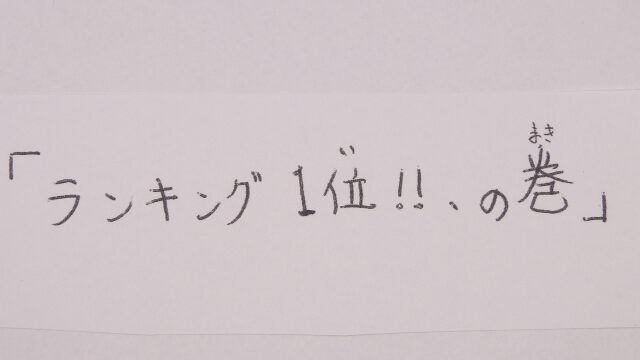 「ランキング1位!!、の巻」
まき